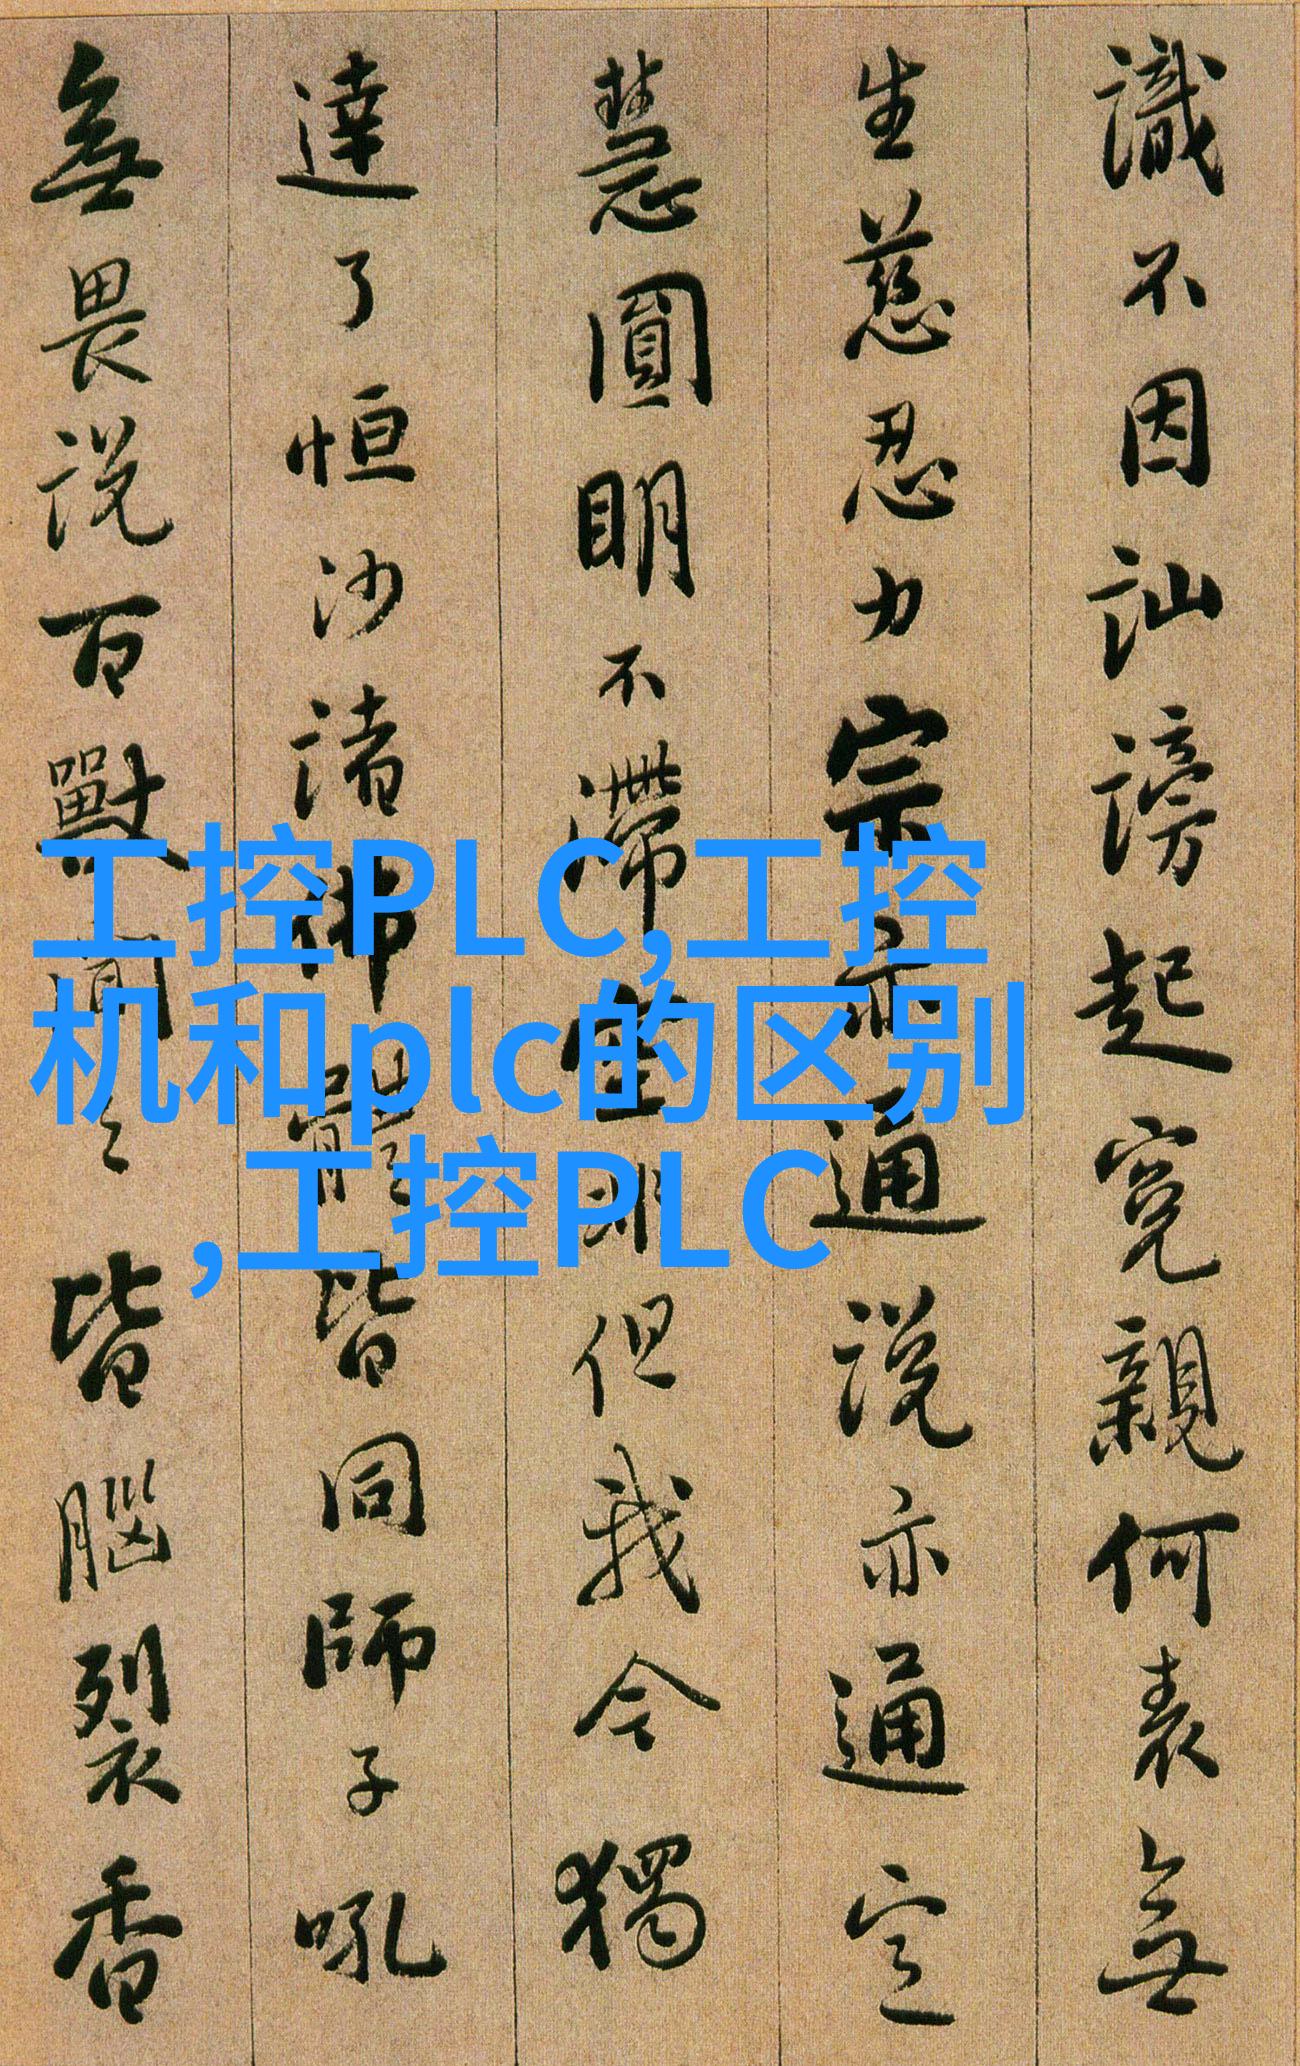 識不因訕謗起寃親何表無
生慈忍力宗亦通説亦通定
慧圓明不滯空非但我今獨
達了恒沙諸佛體皆同師子吼
無畏説百獸聞之皆腦裂香
工控PLC,工控
机和plc的区别
,工控PLC